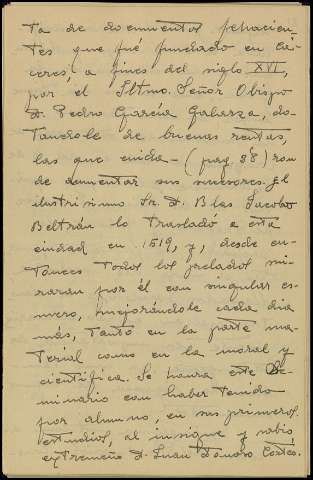 ta de documentos fehacien-
tes que fué fundado en Cá-
ceres, a fines del siglo XVI,
por el Iltmo. Señor Obispo
D. Pedro García Galarza, do-
tandole de buenas rentas,
las que cuida- (pag 88) ron
de aumentar sus sucesores. El
ilustrisimo Sr. D. Blas Jacobo
Beltrán lo trasladó a esta
ciudad en 1819, y, desde en-
tonces todos los prelados mi-
raran por él con singular es-
mero, mejorándole cada dia
más, tanto en la parte ma-
terial como en la moral y
cientifica. Se honra este Se-
minario con haber tenido
por alumno, en sus primeros
estudios, al insigne y sabio
extremeño D. Juan Donoso Cortés.